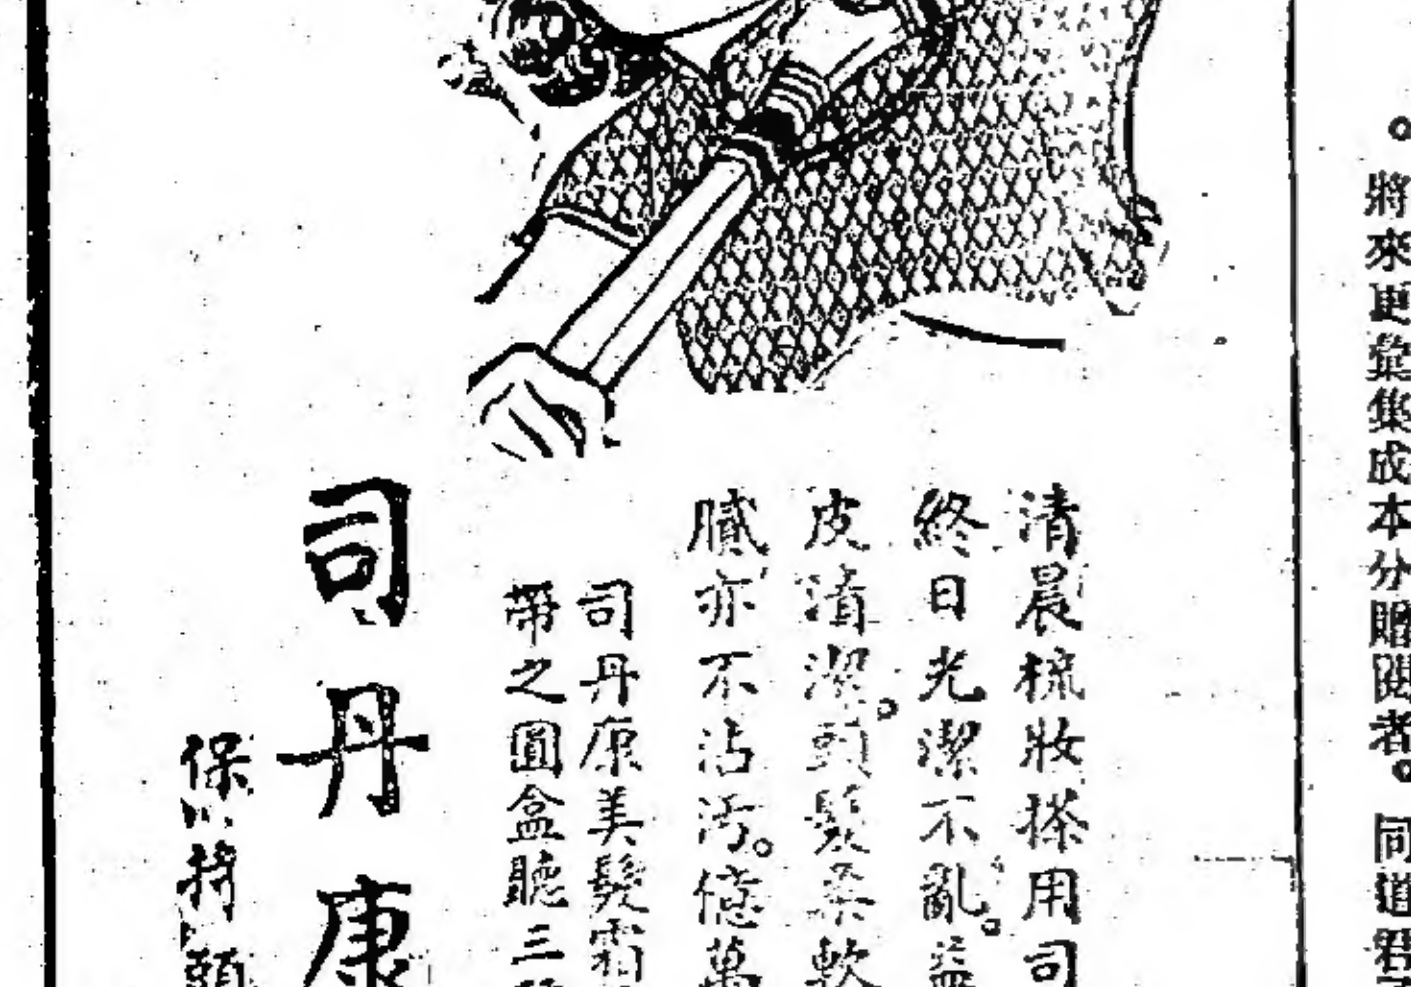 。將來更彙集成本分贈閱者。同道君
清晨梳妝搽用司
終日光潔不亂。益
皮清潔。頭髮柔軟
膩亦不沾污。億萬
司丹康美髮霜
帶之圓盒聽三
司丹康
保持頭